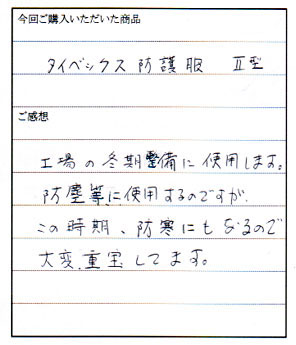 今回ご購入いただいた商品
タイベックス防護服 Ⅱ型
ご感想
工場の冬期整備に使用します。
防塵等に使用するのですが、
この時期、防寒にもなるので
大変、重宝してます。